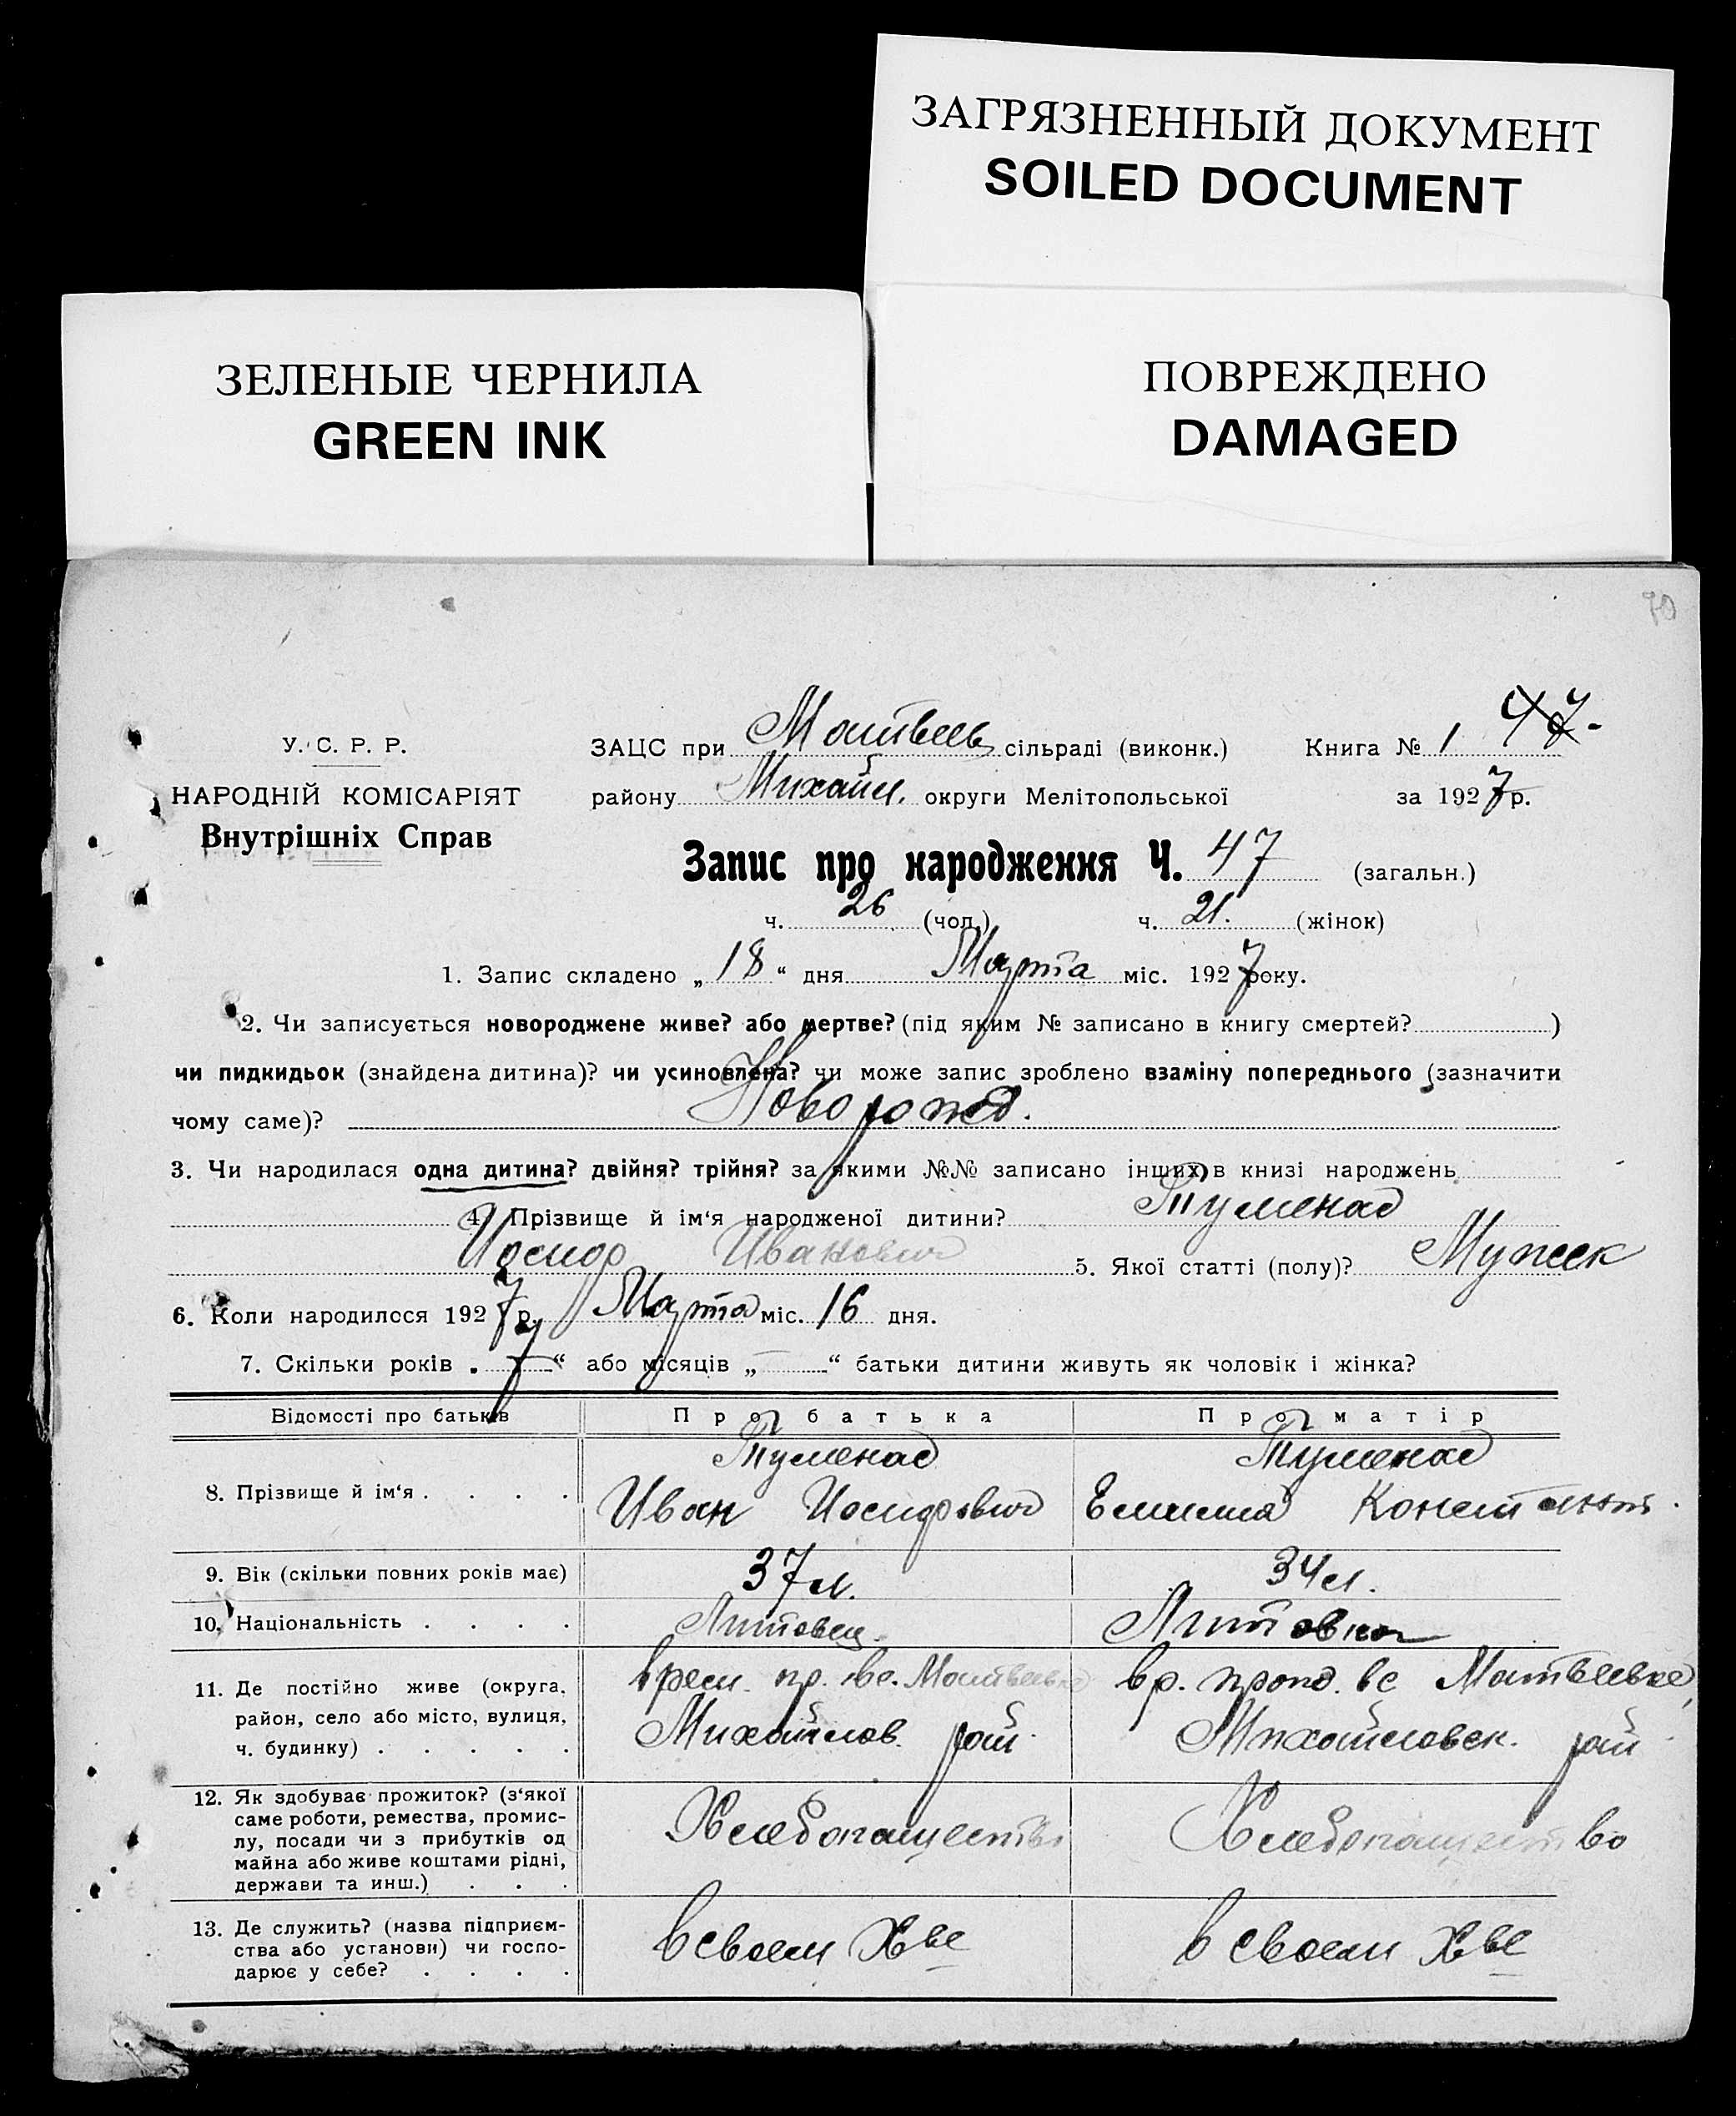 ЗАГРЯЗНЕННЫЙ ДОКУМЕНТ
SOILED DOCUMENT
ЗЕЛЕНЫЕ ЧЕРНИЛА
GREEN INK
ПОВРЕЖДЕНО
DAMAGED
70
47.
У. С. Р. Р.
НАРОДНІЙ КОМІСАРІЯТ
Внутрішніх Справ
ЗАЦС при Матвеев сільраді (виконк.) Книга № 1
району Михайл. округи Мелітопольської за 1927 р.
Запис про народження Ч. 47 (загальн.)
ч. 26 (чол.) ч. 21. (жінок)
1. Запис складено „18“ дня Марта міс. 1927 року.
2. Чи записується новороджене живе? або мертве? (під яким № записано в книгу смертей? )
чи пидкидьок (знайдена дитина)? чи усиновлена? чи може запис зроблено взаміну попереднього (зазначити
чому саме)? Новорожд.
3. Чи народилася одна дитина? двійня? трійня? за якими №№ записано інших в книзі народжень
4. Прізвище й ім‘я народженої дитини? Туменас
Иосиф Иванович 5. Якої статті (полу)? Мужск
6. Коли народилося 1927 р. Марта міс. 16 дня.
7. Скільки років „7“ або місяців „—“ батьки дитини живуть як чоловік і жінка?
Відомості про батьків Про батька Про матір
8. Прізвище й ім‘я . . . . Туменас Иван Иосифович Туменас Констант.
9. Вік (скільки повних років має) 37 л. 34 л.
10. Національність . . . . Литовец. Литовка
11. Де постійно живе (округа, район, село або місто, вулиця, ч. будинку) . . . . . врем. пр. в с. Матвеевке Михайлов. рай. вр. прож. в с Матвеевке, Михайловск. рай.
12. Як здобуває прожиток? (з‘якої саме роботи, ремества, промислу, посади чи з прибутків од майна або живе коштами рідні, держави та инш.) . . . Хлебопашество Хлебопашество
13. Де служить? (назва підприємства або установи) чи господарює у себе? . . . . в своем Х-ве в своем Х-ве